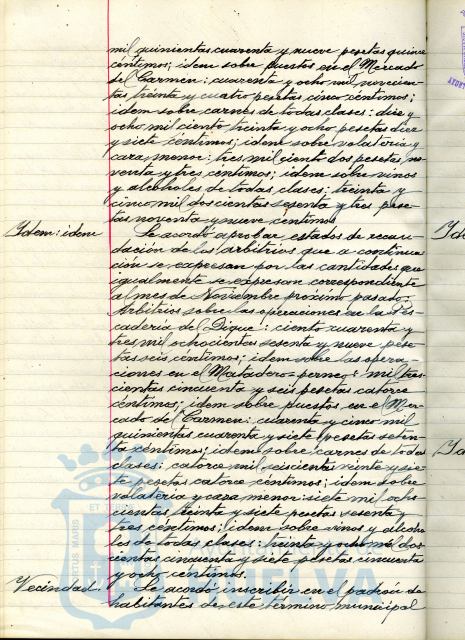 mil quinientas cuarenta y nueve pesetas quince
céntimos; idem sobre puestos en el Mercado
del Carmen: cuarenta y ocho mil novecien-
tas treinta y cuatro pesetas cinco céntimos;
idem sobre carnes de todas clases: diez y
ocho mil ciento treinta y ocho pesetas diez
y siete céntimos; idem sobre volateria y
caza menor: tres mil ciento dos pesetas no-
venta y tres céntimos; idem sobre vinos
y alcoholes de todas clases: treinta y
cinco mil doscientas sesenta y tres pese-
tas noventa y nueve céntimos.
Idem: idem
Se acordó aprobar estados de recau-
dación de los arbitrios que a continua-
ción se expresan por las cantidades que
igualmente se expresan correspondiente
al mes de Noviembre próximo pasado:
Arbitrios sobre las operaciones en la Pes-
cadería del Dique: ciento cuarenta y
tres mil ochocientas sesenta y nueve pese-
tas seis céntimos; idem sobre las opera-
ciones en el Matadero: mil tres-
cientas cincuenta y seis pesetas catorce
céntimos; idem sobre puestos en el Mer-
cado del Carmen: cuarenta y cinco mil
quinientas cuarenta y siete pesetas seten-
ta céntimos; idem sobre carnes de todas
clases: catorce mil seiscientas veinte y sie-
te pesetas catorce céntimos; idem sobre
volateria y caza menor: siete mil ocho-
cientas treinta y siete pesetas sesenta y
tres céntimos; idem sobre vinos y alcoho-
les de todas clases: treinta y ocho mil dos-
cientas cincuenta y siete pesetas cincuenta
y ocho céntimos.
Vecindad:
Se acordó inscribir en el padrón de
habitantes de este término municipal
Ayuntamiento de
HUELVA